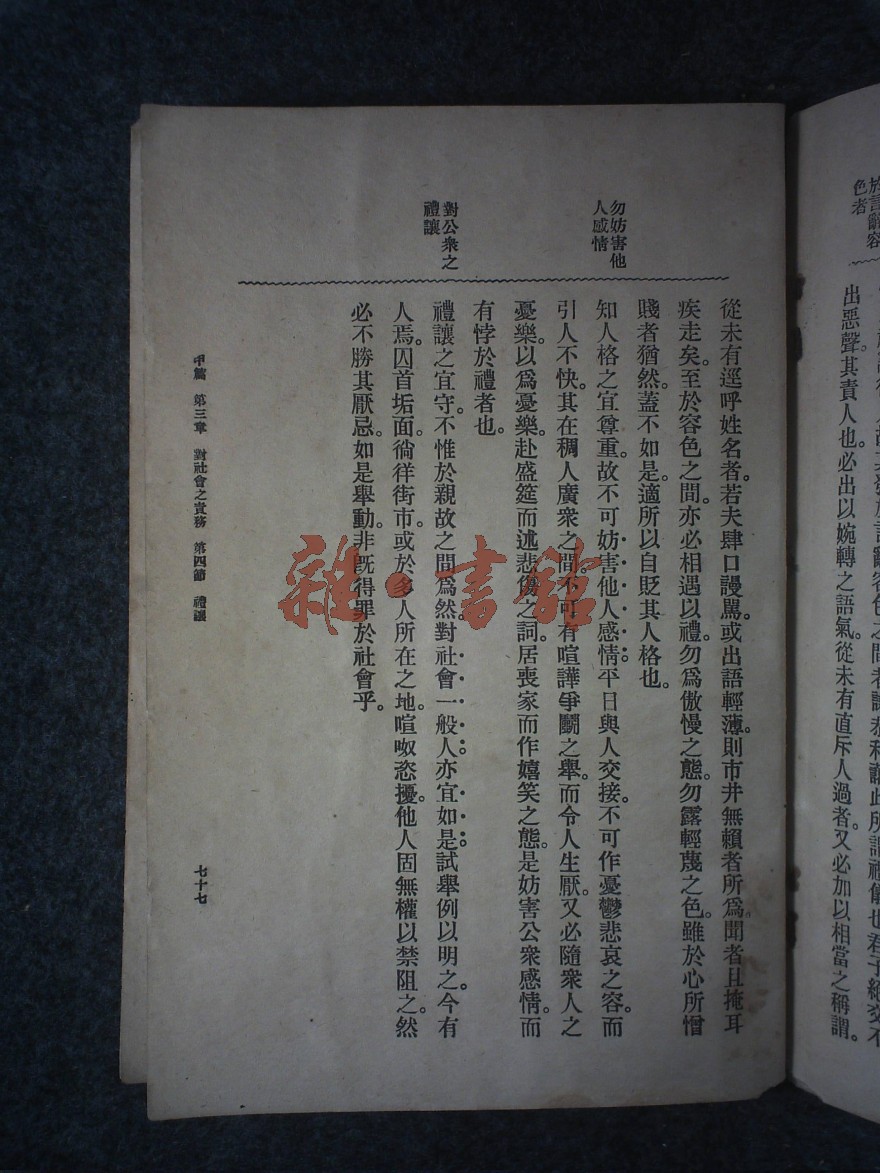 色者
出惡聲。其責人也。必出以婉轉之語氣。從未有直斥人過者。又必加以相當之稱謂。
從未有逕呼姓名者。若夫肆口謾罵。或出語輕薄。則市井無賴者所爲。聞者且掩耳
疾走矣。至於容色之間。亦必相遇以禮。勿爲傲慢之態。勿露輕蔑之色。雖於心所憎
賤者猶然。蓋不如是。適所以自貶其人格也。
勿妨害他
人感情
知人格之宜尊重。故不可妨害他人感情。平日與人交接。不可作憂鬱悲哀之容。而
引人不快。其在稠人廣衆之間。不可有喧譁爭鬭之舉。而令人生厭。又必隨衆人之
憂樂。以爲憂樂。赴盛筵而述悲傷之詞。居喪家而作嬉笑之態。是妨害公衆感情。而
有悖於禮者也。
對公衆之
禮讓
禮讓之宜守。不惟於親故之間爲然。對社會一般人。亦宜如是。試舉例以明之。今有
人焉。囚首垢面。徜徉街市。或於多人所在之地。喧呶恣擾。他人固無權以禁阻之。然
必不勝其厭忌。如是舉動。非旣得罪於社會乎。
甲篇 第三章 對社會之責務 第四節 禮讓
七十七
雜·書館